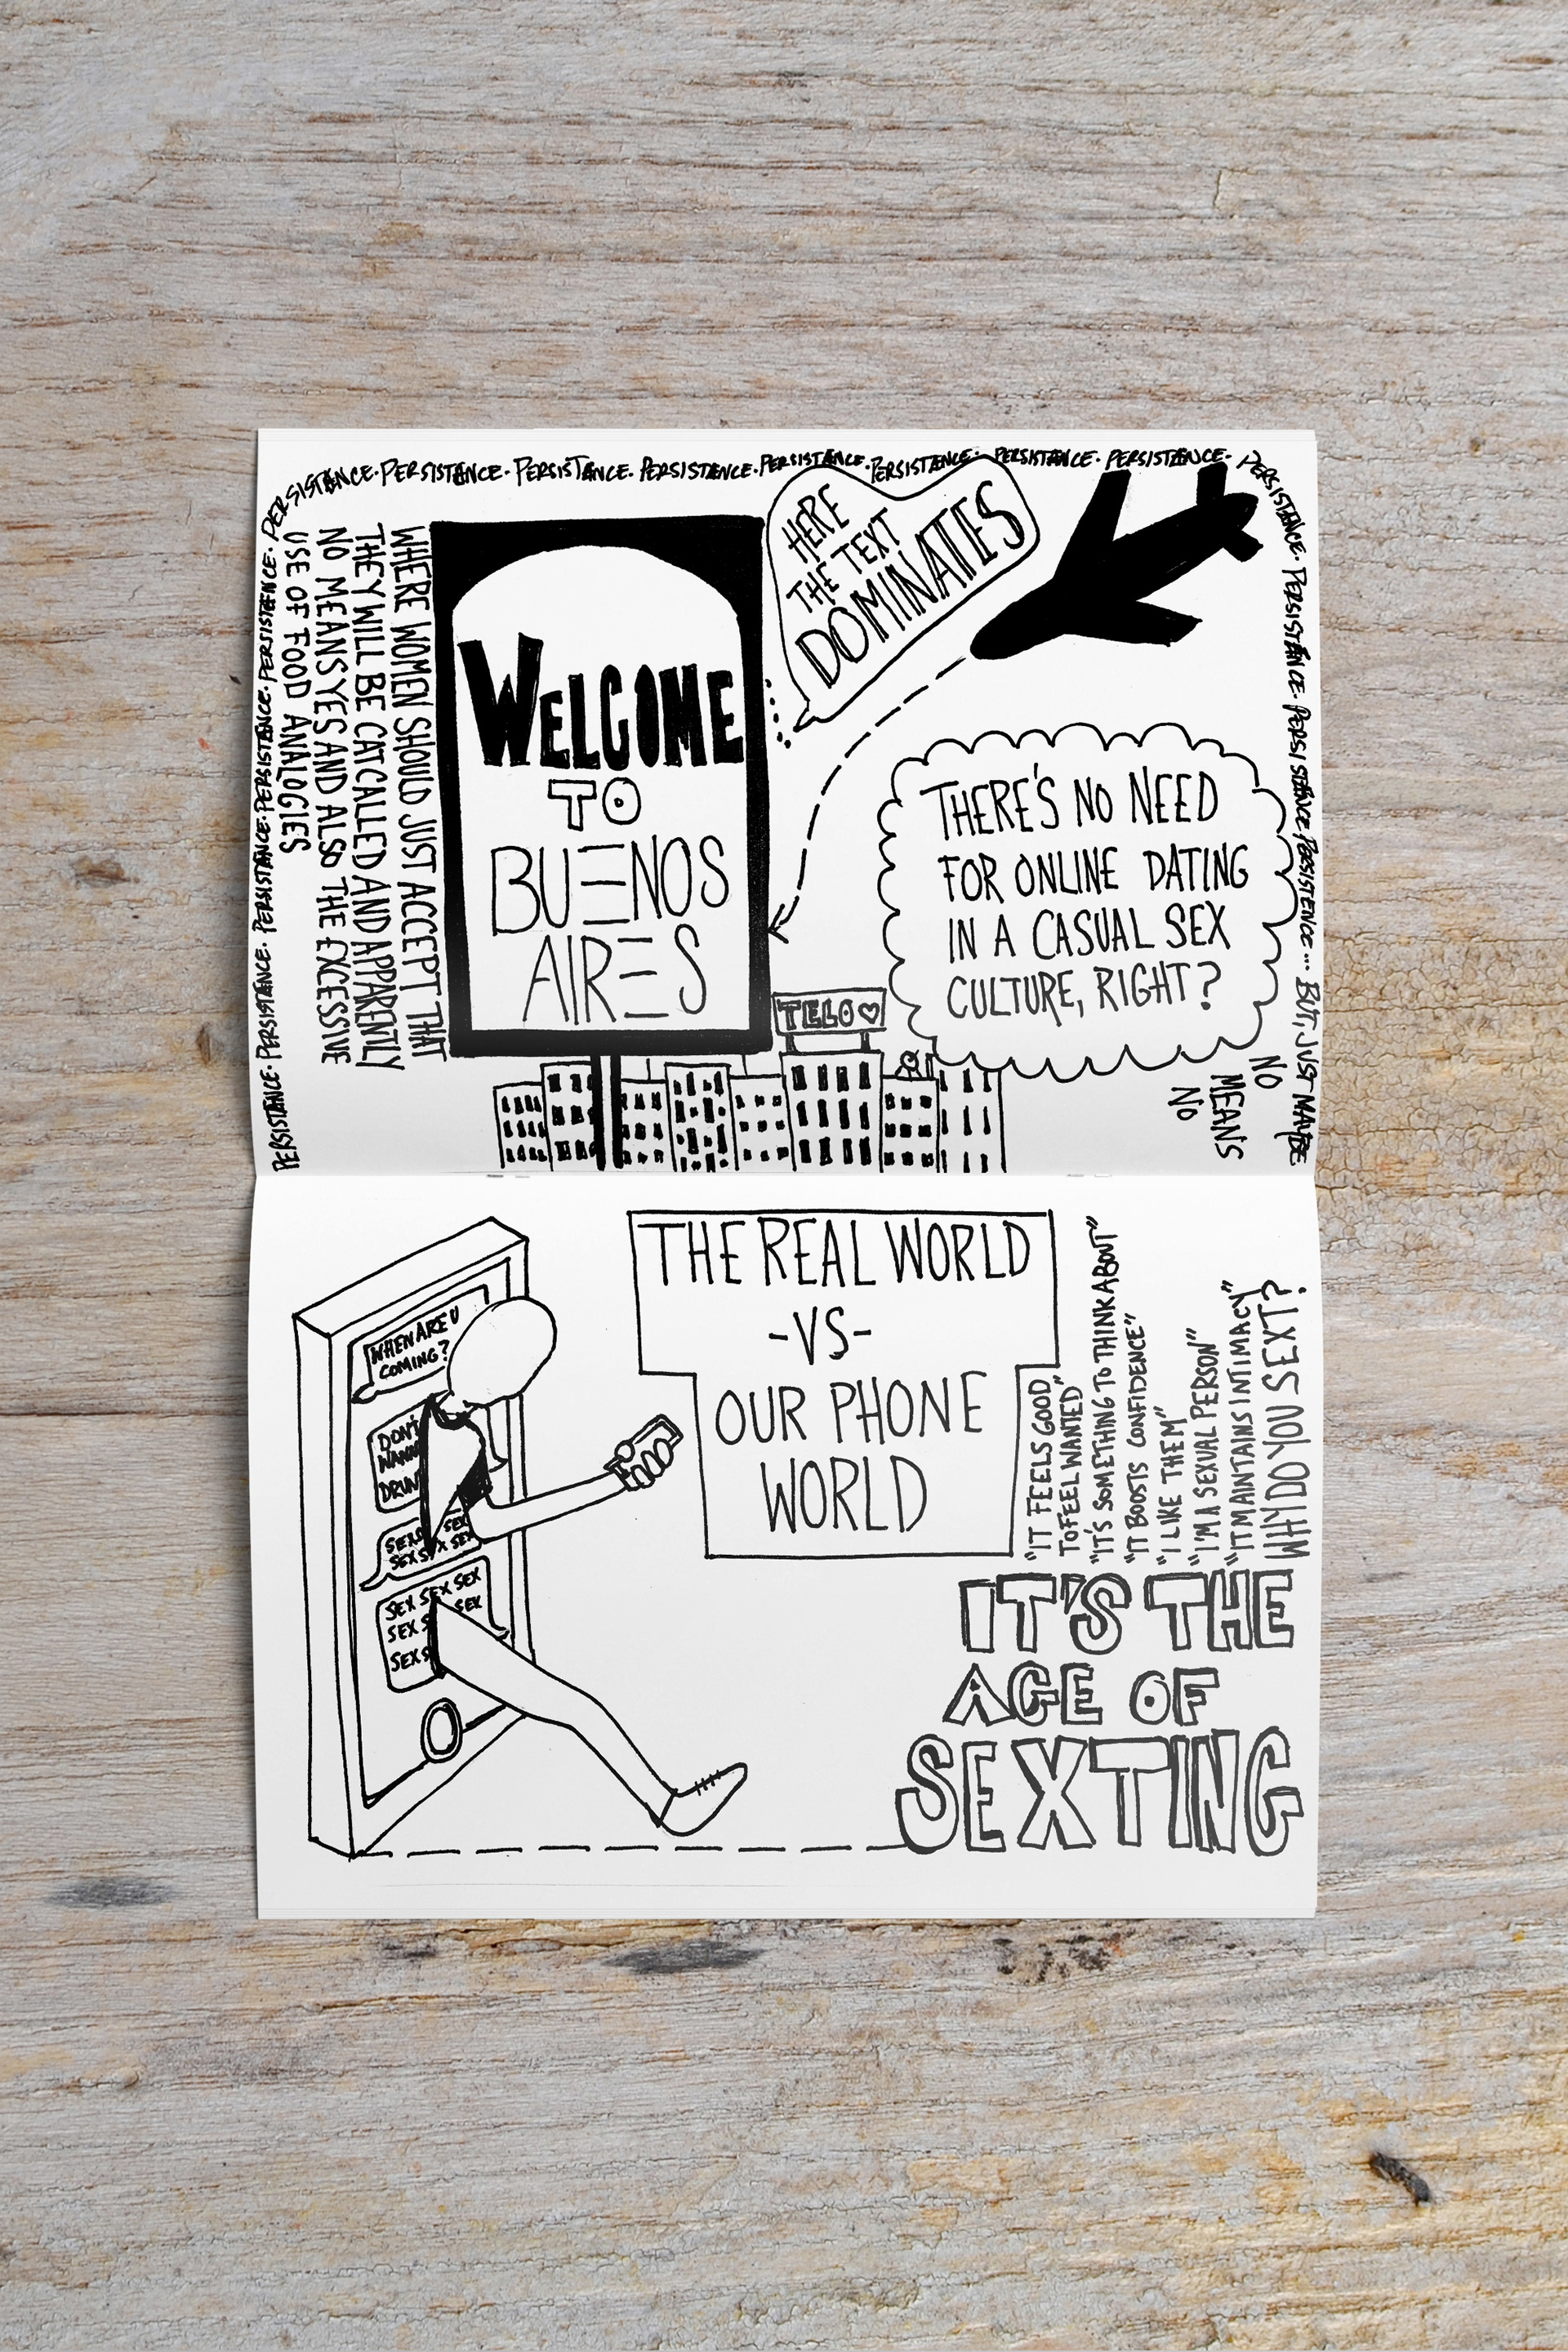 PERSISTANCE. PERSISTANCE. PERSISTANCE. PERSISTENCE. PERSISTENCE.
PERSISTANCE. PERSISTANCE. PERSISTANCE. PERSISTANCE. PERSISTANCE. PERSISTANCE. PERSISTANCE. PERSISTANCE.
PERSISTANCE. PERSISTANCE. PERSISTANCE PERSISTENCE... BUT, JUST MAYBE
NO
MEANS
NO
WHERE WOMEN SHOULD JUST ACCEPT THAT
THEY WILL BE CATCALLED AND APPARENTLY
NO MEANS YES AND ALSO THE EXCESSIVE
USE OF FOOD ANALOGIES
WELCOME
TO
BUENOS
AIRES
HERE
THE TEXT
DOMINATES
THERE'S NO NEED
FOR ONLINE DATING
IN A CASUAL SEX
CULTURE, RIGHT?
TELO
WHEN ARE U
COMING?
DON'T
SEX SEX SEX
SEX SEX
THE REAL WORLD
-VS-
OUR PHONE
WORLD
"IT FEELS GOOD
TO FEEL WANTED"
"IT'S SOMETHING TO THINK ABOUT"
"IT BOOSTS CONFIDENCE"
"I LIKE THEM"
"I'M A SEXUAL PERSON"
"IT MAINTAINS INTIMACY"
WHY DO YOU SEXT?
IT'S THE
AGE OF
SEXTING